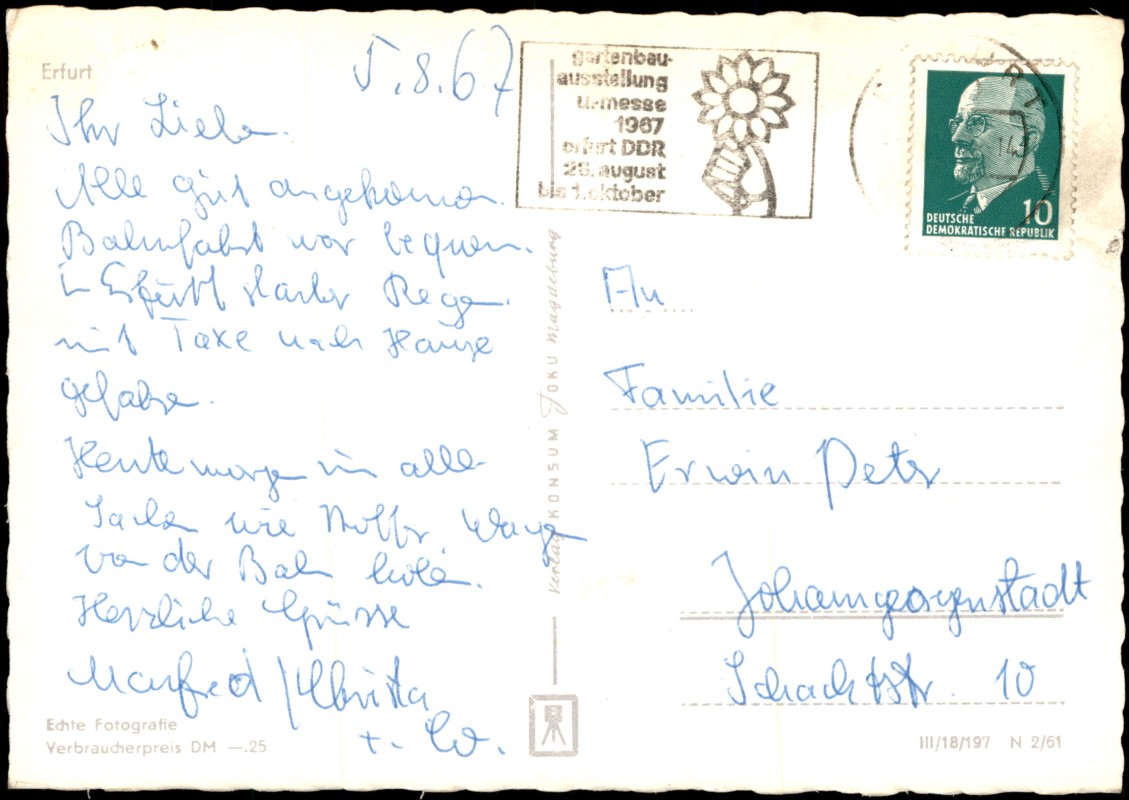 Erfurt
5.8.67
Ihr Lieben.
Alle gut angekommen.
Bahnfahrt war bequem.
In Erfurt starker Regen.
mit Taxe nach Hause
gefahren.
Heute morgen alle
Sachen wie Wagen
von der Bahn holen.
Herzliche Grüsse
Manfred / Christa
Echte Fotografie
Verbraucherpreis DM —.25
gartenbau-
ausstellung
u.messe
1967
erfurt DDR
26. august
bis 1. oktober
10
DEUTSCHE
DEMOKRATISCHE REPUBLIK
Verlag KONSUM FOKU Magdeburg
An
Familie
Erwin Peter
Johanngeorgenstadt
Schachtstr. 10
III/18/197 N 2/61